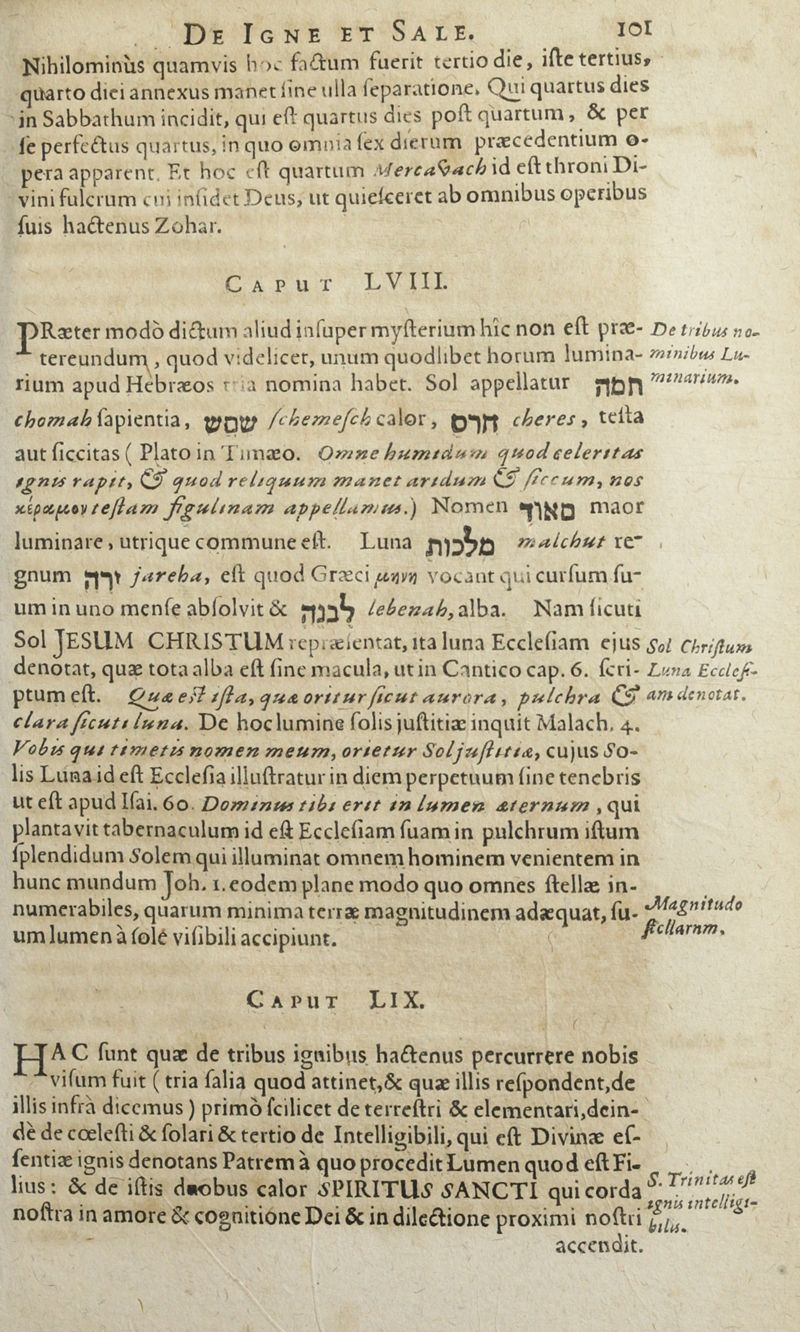 De Igne et Sale. 101
Nihilominùs quamvis hoc factum fuerit tertio die, iste tertius,
quarto diei annexus manet sine ulla separatione. Qui quartus dies
in Sabbathum incidit, qui est quartus dies post quartum, & per
se perfectus quartus, in quo omnia sex dierum præcedentium o-
pera apparent. Et hoc est quartum id est throni Di-
vini fulcrum cui insidet Deus, ut quiesceret ab omnibus operibus
suis hactenus Zohar.
Caput LVIII.
PRæter modò dictum aliud insuper mysterium hîc non est præ- De tribus no-
tereundum, quod videlicet, unum quodlibet horum lumina- minibus Lu-
rium apud Hebræos tria nomina habet. Sol appellatur חמה minarium.
chomah sapientia, שמש schemesch calor, חרס cheres, testa
aut siccitas ( Plato in Timæo. Omne humidum quod celeritas
ignis rapit, & quod reliquum manet aridum & siccum, nos
κέραμον testam figulinam appellamus.) Nomen מאור maor
luminare, utrique commune est. Luna מלכות malchut re-
gnum ירה jareha, est quod Græci μηνη vocant qui cursum su-
um in uno mense absolvit & לבנה lebenah, alba. Nam sicuti
Sol JESUM CHRISTUM repræsentat, ita luna Ecclesiam ejus Sol Christum
denotat, quæ tota alba est sine macula, ut in Cantico cap. 6. scri- Luna Ecclesi-
ptum est. Quæ est ista, quæ oritur sicut aurora, pulchra & am denotat.
clara sicuti luna. De hoc lumine solis justitiæ inquit Malach. 4.
Vobis qui timetis nomen meum, orietur Sol justitiæ, cujus So-
lis Luna id est Ecclesia illustratur in diem perpetuum sine tenebris
ut est apud Isai. 60. Dominus tibi erit in lumen æternum , qui
plantavit tabernaculum id est Ecclesiam suam in pulchrum istum
splendidum Solem qui illuminat omnem hominem venientem in
hunc mundum Joh. 1. eodem plane modo quo omnes stellæ in-
numerabiles, quarum minima terræ magnitudinem adæquat, su- Magnitudo
um lumen à solé visibili accipiunt. stellarnm.
Caput LIX.
HAC sunt quæ de tribus ignibus hactenus percurrere nobis
visum fuit ( tria salia quod attinet, & quæ illis respondent, de
illis infrà dicemus ) primò scilicet de terrestri & elementari, dein-
dè de cœlesti & solari & tertio de Intelligibili, qui est Divinæ es-
sentiæ ignis denotans Patrem à quo procedit Lumen quod est Fi-
lius: & de istis duobus calor SPIRITUS SANCTI qui corda S. Trinitas est
nostra in amore & cognitióne Dei & in dilectione proximi nostri ignis intelligi-
accendit. bilis.